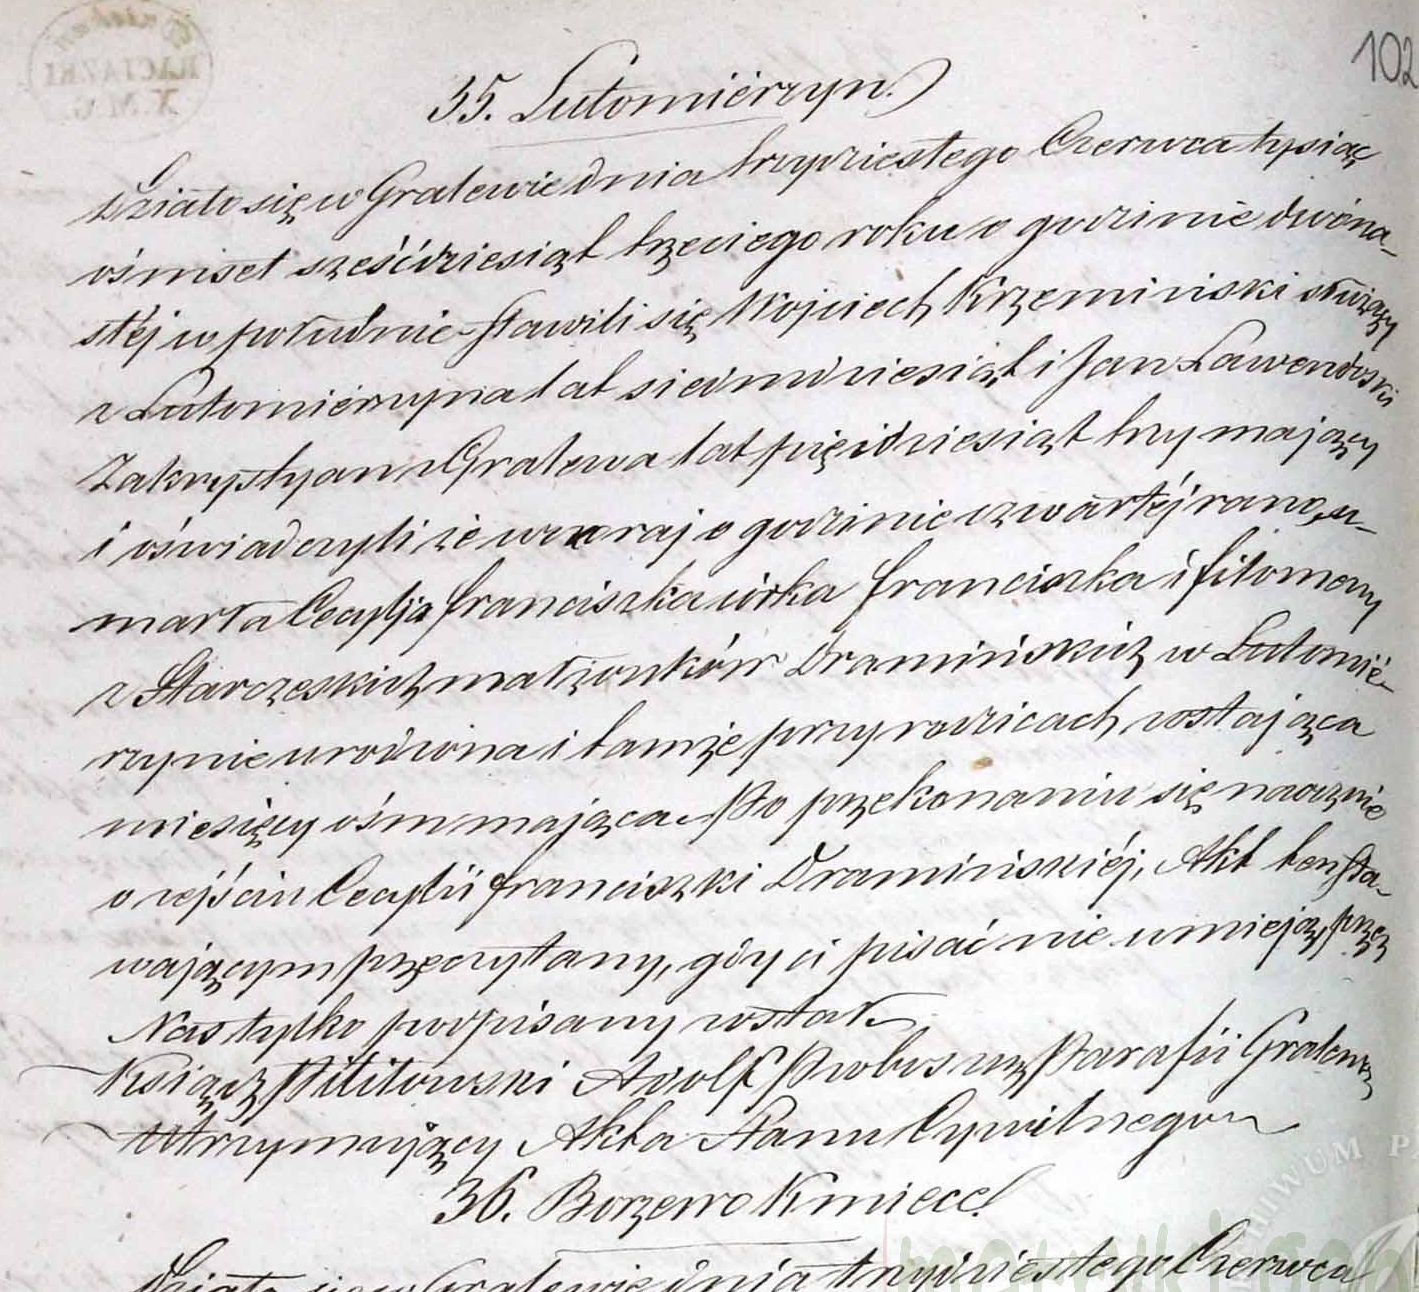 102
RACIĄŻKI
35. Lutomierzyn.
Działo się w Gralewie dnia trzydziestego Czerwca tysiąc
ośmset sześćdziesiąt trzeciego roku o godzinie dwóna-
stéj w południe stawili się Wojciech Krzemiński służący
z Lutomierzyna lat siedmdziesiąt i Jan Lawendoski
Zakrystyan z Gralewa lat pięćdziesiąt trzy mający
i oświadczyli że wczoraj o godzinie czwartéj rano, u-
marła Cecylja Franciszka córka Franciszka i Filomeny
z Starczeskich małżonków Dramińskich w Lutomie-
rzynie urodzona i tamże przy rodzicach zostająca
miesięcy ośm mająca. Po przekonaniu się naocznie
o zejściu Cecylii Franciszki Dramińskiéj, Akt ten sta-
wającym przeczytany, gdy ci pisać nie umieją, przez
Nas tylko podpisany został
Ksiądz Adolf Proboszcz Parafii Gralewo
Utrzymujący Akta Stanu Cywilnego
36. Borzewo Kmiece
Działo się w Gralewie dnia trzydziestego Czerwca